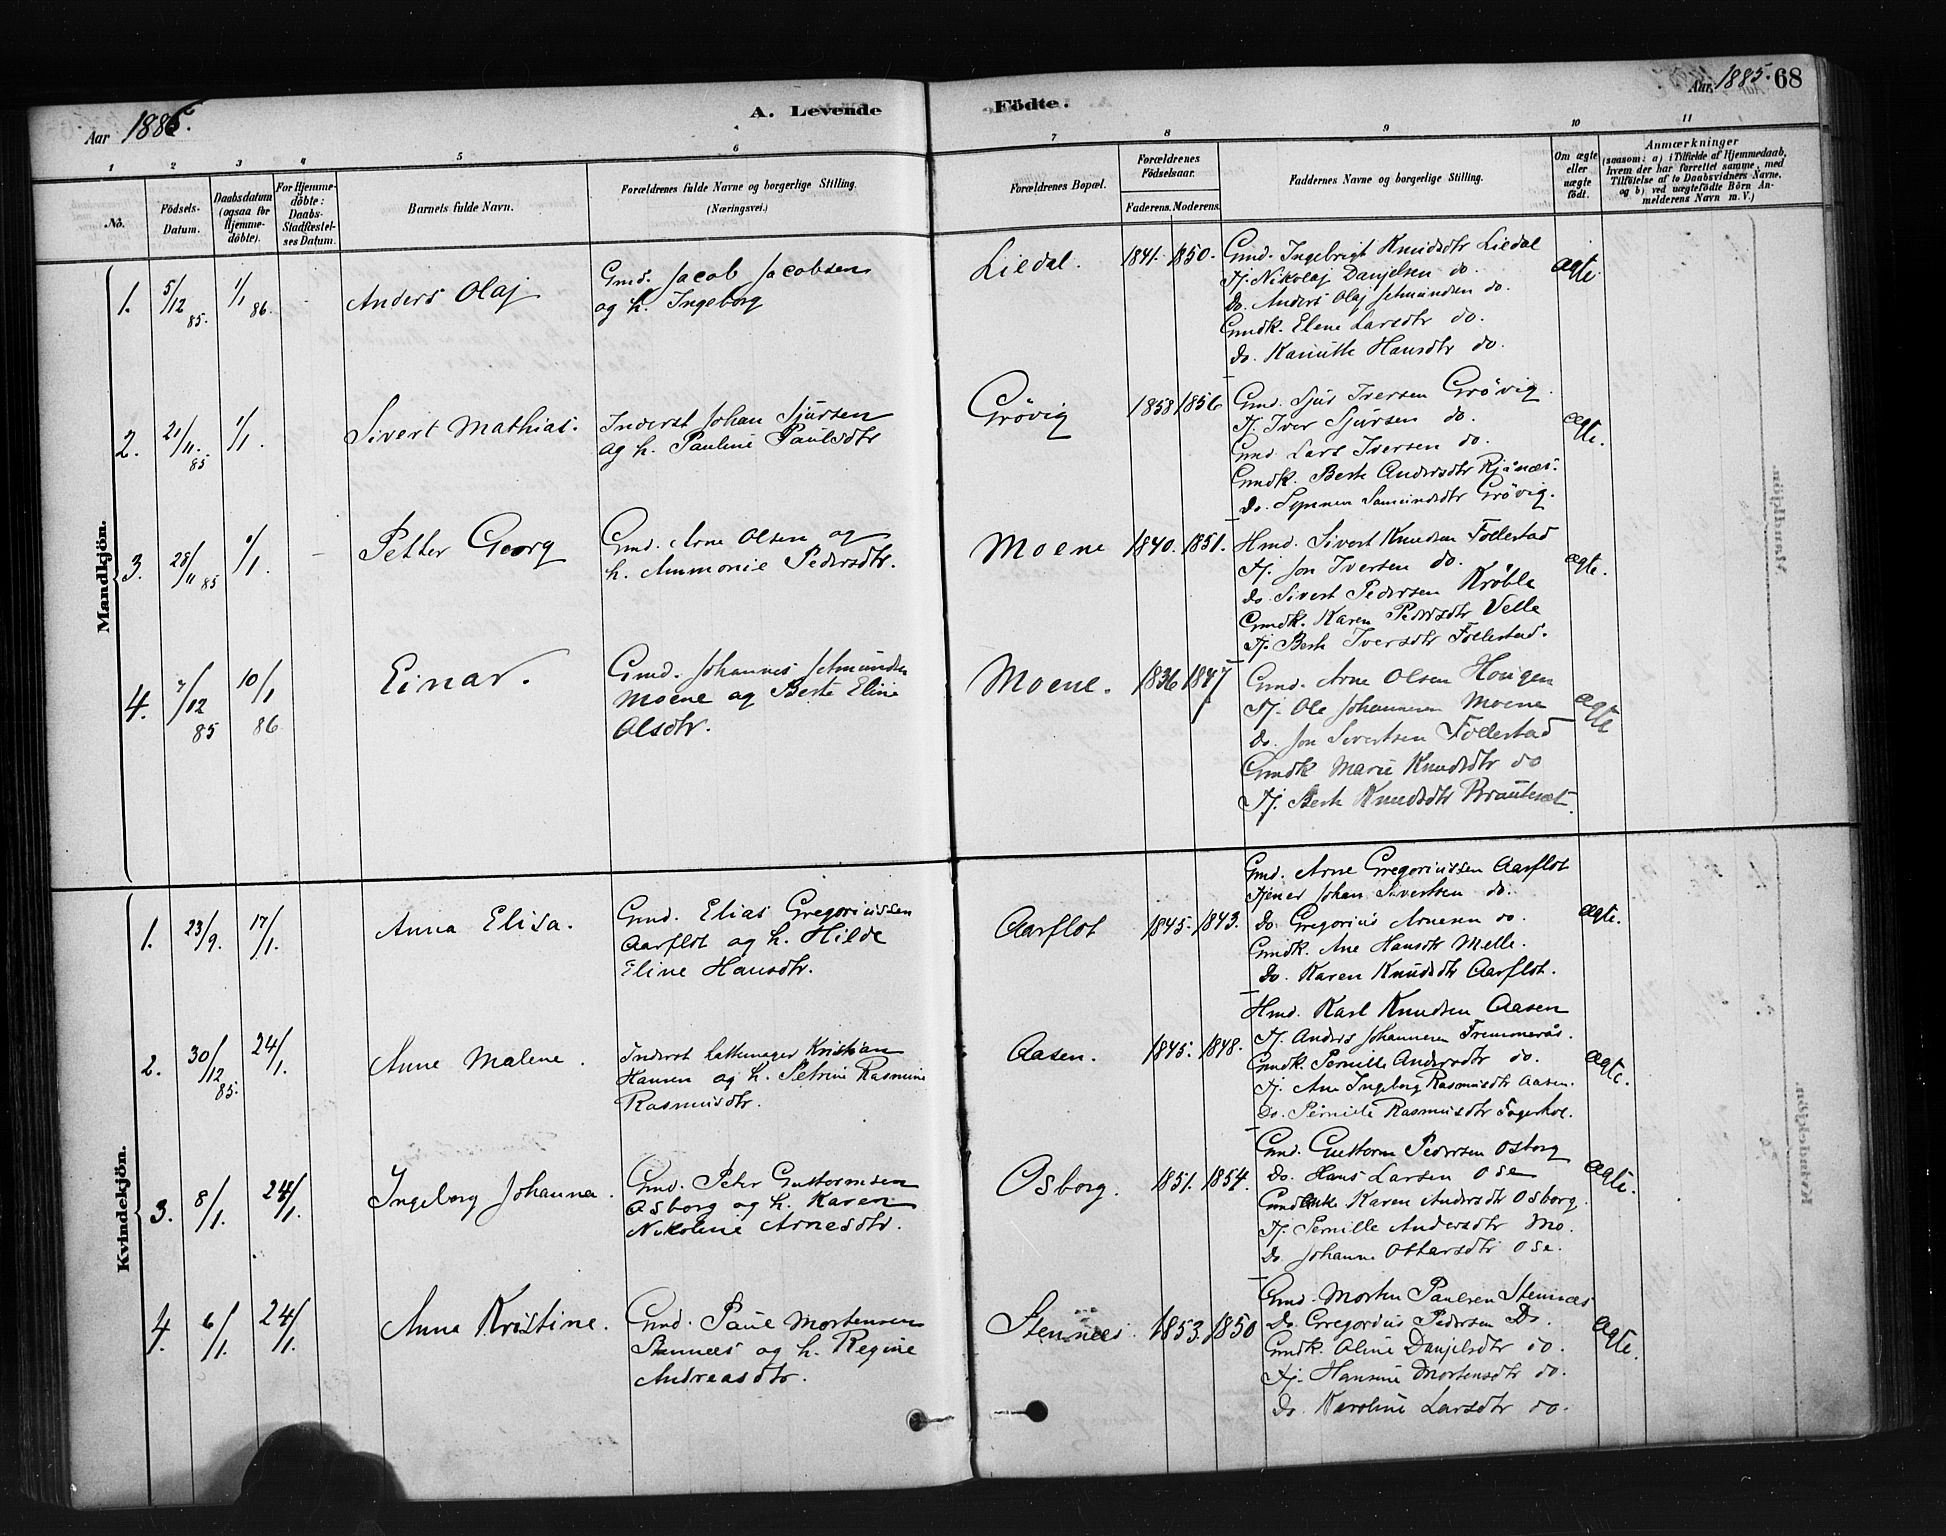 Aar 1886.
A. Levende
Födte.
Aar 1885. 68
1 2 3 4 5 6 7 8 9 10 11
No.
Födsels-
Datum.
Daabsdatum
(ogsaa for
Hjemme-
döbte).
For Hjemme-
döbte:
Daabs-
Stadfæstel-
ses Datum.
Barnets fulde Navn.
Forældrenes fulde Navne og borgerlige Stilling.
(Næringsvei.)
Forældrenes Bopæl.
Forældrenes
Födselsaar.
Faderens. Moderens.
Faddernes Navne og borgerlige Stilling.
Om ægte
eller
uægte
födt.
Anmærkninger
(saasom: a) i Tilfælde af Hjemmedaab,
hvem der har forrettet samme, med
Tilföielse af to Daabsvidners Navne,
og b) ved uægtefödte Börn An-
melderens Navn m. V.)
Mandkjön.
1. 5/12 85. 1/1 86. Anders Olaj
Gmd. Jacob Jacobsen
og h. Ingeborg
Liedal. 1841. 1850.
Gmd. Ingebrigt Knudsdtr Liedal
Tj. Nikolaj Danjelsen do.
Do. Anders Olaj Jetmundsen do.
Gmdk. Elene Larsdtr do.
Do. Hansdtr do.
ægte
2. 21/11. 85 1/1. Sivert Mathias.
Inderst Johan Sjursen
og h. Pauline Paulsdtr
Grövig 1858 1856
Gmd. Sjur Iversen Grövig.
Tj. Iver Sjursen do.
Gmd Lars Iversen do.
Gmdk. Berte Andersdtr
Do. Synnev Samundsdtr Grövig.
ægte.
3. 28/11 85 1/1. - Petter Georg
Gmd. Arne Olsen og
h. Ammonie Pedersdtr.
Moene 1840. 1851.
Hmd. Sivert Knudsen Follestad
Tj. Jon Iversen do.
Do. Sivert Pedersen Kröble
Gmdk. Karen Pedersdtr Velle
Tj. Berte Iversdtr Follestad.
ægte.
4. 7/12 85 10/1 86 Einar.
Gmd. Johannes Jetmundsen
Moene og Berte Eline
Olsdtr.
Moene. 1836 1847
Gmd. Arne Olsen Hougen
Tj. Ole Johannesen Moene
Do. Jon Sivertsen Follestad
Gmdk Marie Knudsdtr do
Tj. Berte Knudsdtr Brauteset.
ægte
Kvindekjön.
1. 23/9. 17/1. Anna Elisa.
Gmd. Elias Gregoriussen
Aarflot og h. Hilde
Eline Hansdtr.
Aarflot 1845. 1843.
Gmd. Arne Gregoriussen Aarflot
Tjener Johan Sivertsen do.
Do. Gregorius Arnesen do.
Gmdk. Ane Hansdtr Melle.
Do. Karen Knudsdtr Aarflot.
ægte.
2. 30/12 85. 24/1. Anne Malene.
Inderst Lattemager Kristian
Hansen og h. Petrine Rasmine
Rasmusdtr.
Aasen. 1845. 1848.
Hmd. Karl Knudsen Aasen
Tj. Anders Johannesen Fremmerås.
Gmdk. Pernille Andersdtr do.
Tj. Ane Ingeborg Rasmusdtr Aasen.
Do. Pernille Rasmusdtr Fagerhol.
ægte.
3. 8/1. 24/1. Ingeborg Johanna.
Gmd. Peter Guttormsen
Osborg og h. Karen
Nikoline Arnesdtr.
Osborg. 1851. 1854.
Gmd. Guttorm Pedersen Osborg
Do. Hans Larsen Ose
Karen Andersdtr Osborg.
Tj. Pernille Andersdtr Mo.
Do Johanne Ottarsdtr Ose.
ægte.
4. 6/1. 24/1. Anna Kristine.
Gmd. Paul Mortensen
Stennæs og h. Regine
Andreasdtr.
Stennæs. 1853. 1850
Gmd. Morten Paulsen Stennæs
Do. Gregorius Pedersen Do.
Gmdk. Oline Danjelsdtr do.
Tj. Hansine Mortensdtr do.
Do. Karoline Larsdtr do.
ægte.
Mandkjön.
Kvindekjön.